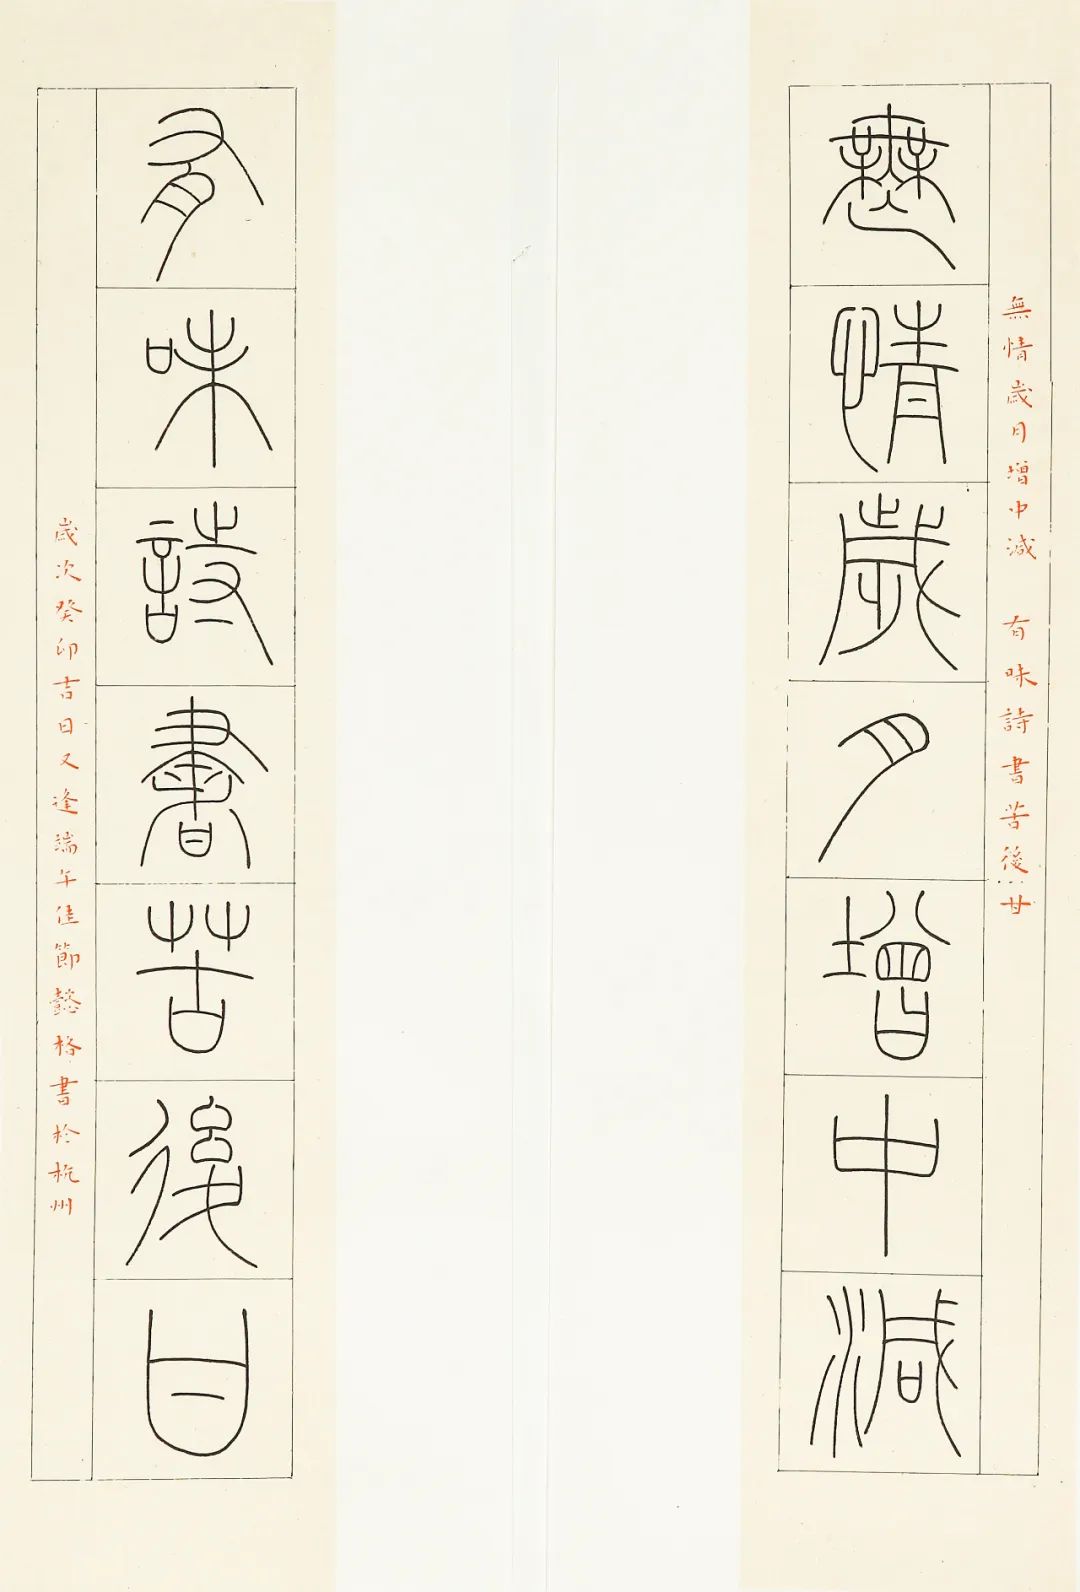 無情歲月增中減
無情歲月增中減 有味詩書苦後甘
有味詩書苦後甘
歲次癸卯吉日又逢端午佳節懿格書於杭州